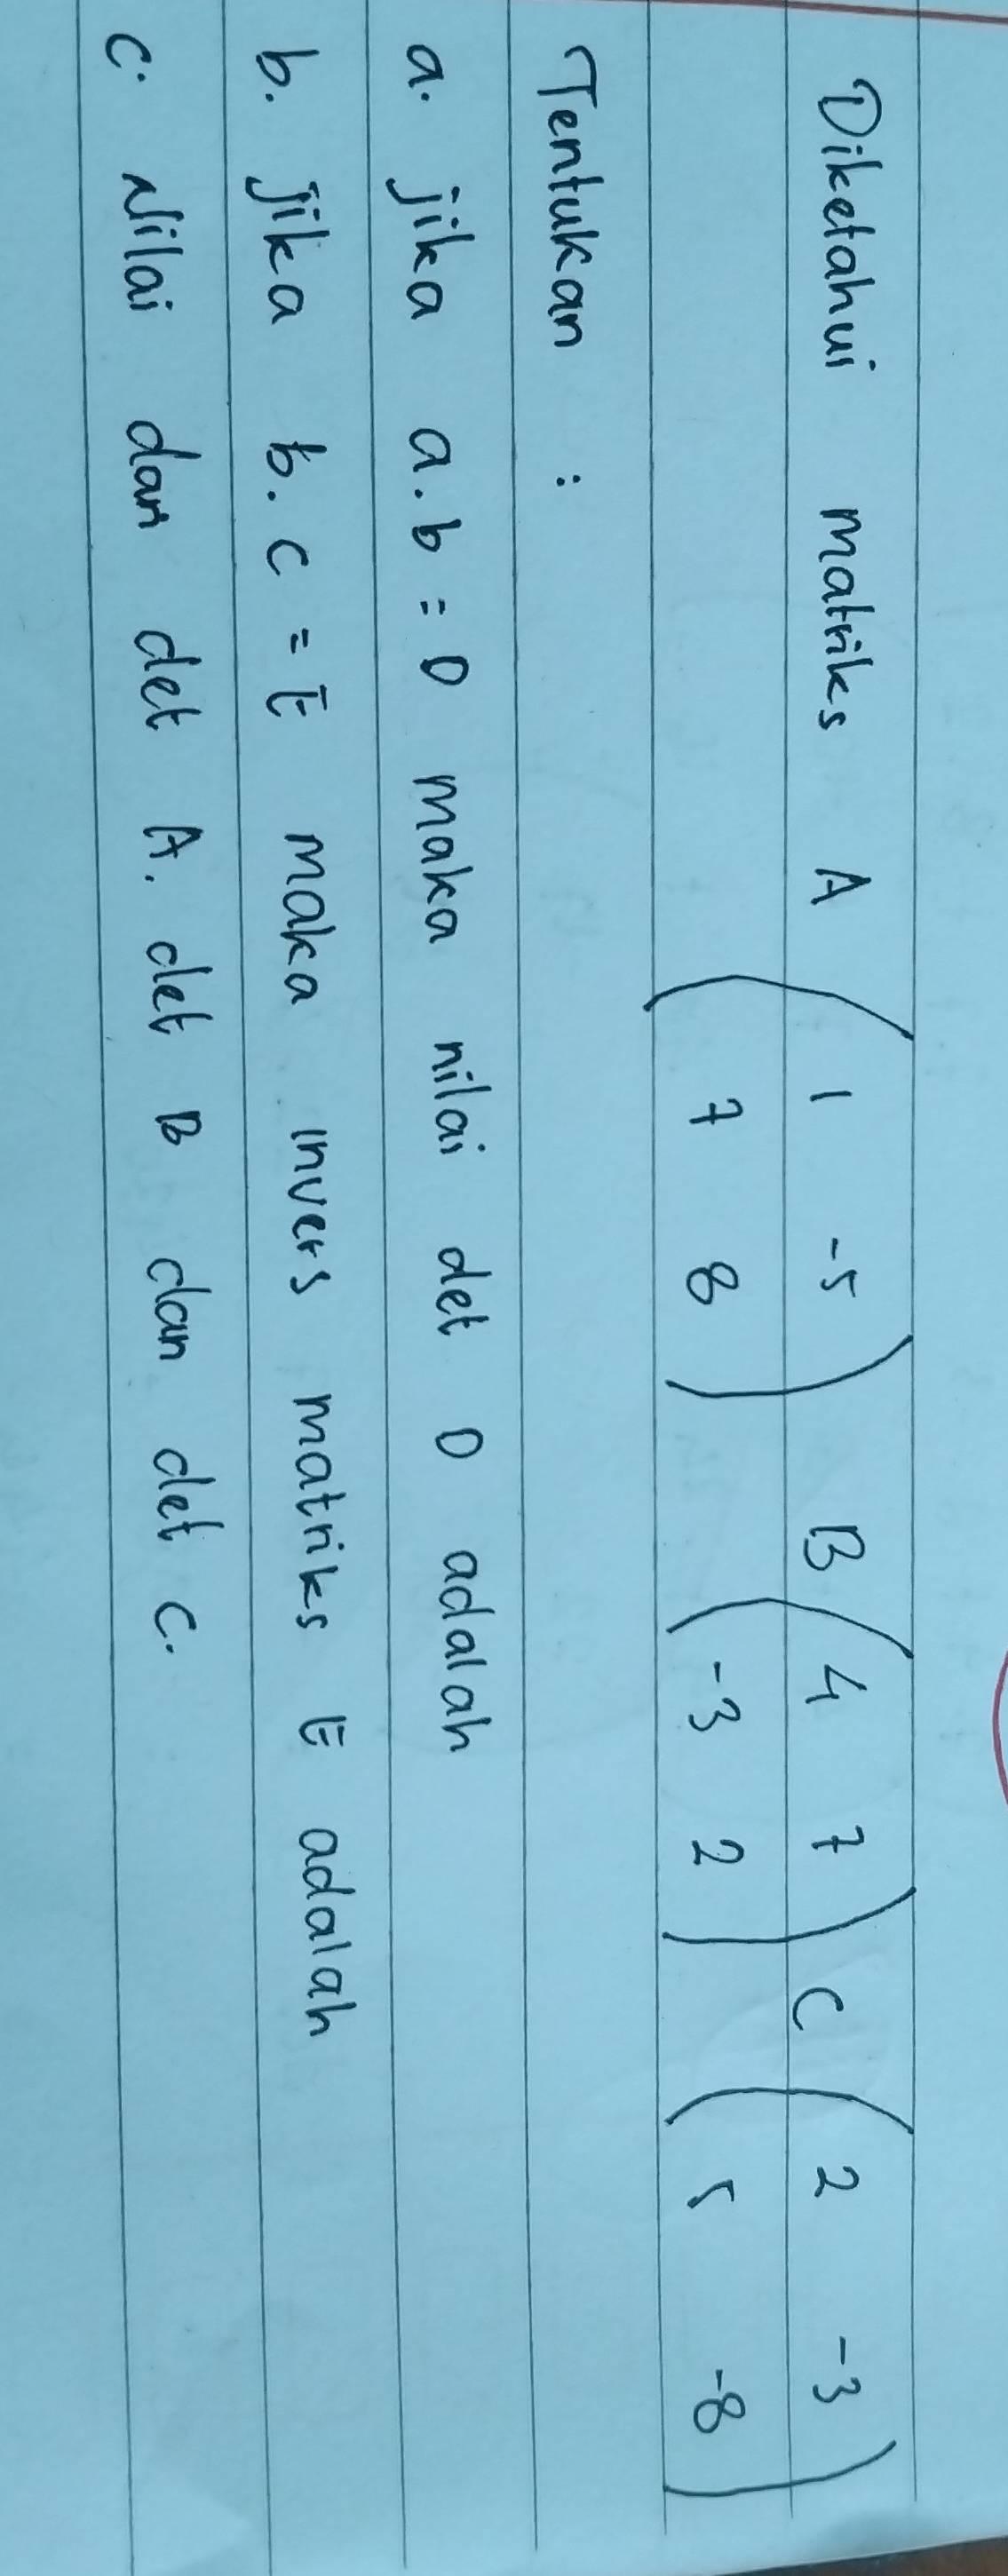 Diketahui matriks A ( 1 -5 ) B ( 4 7 ) C ( 2 -3 )
( 7 8 ) ( -3 2 ) ( 5 -8 )
Tentukan :
a. jika a.b = D maka nilai det D adalah
b. jika b.c = E maka invers matriks E adalah
c. Nilai dari det A. det B dan det C.